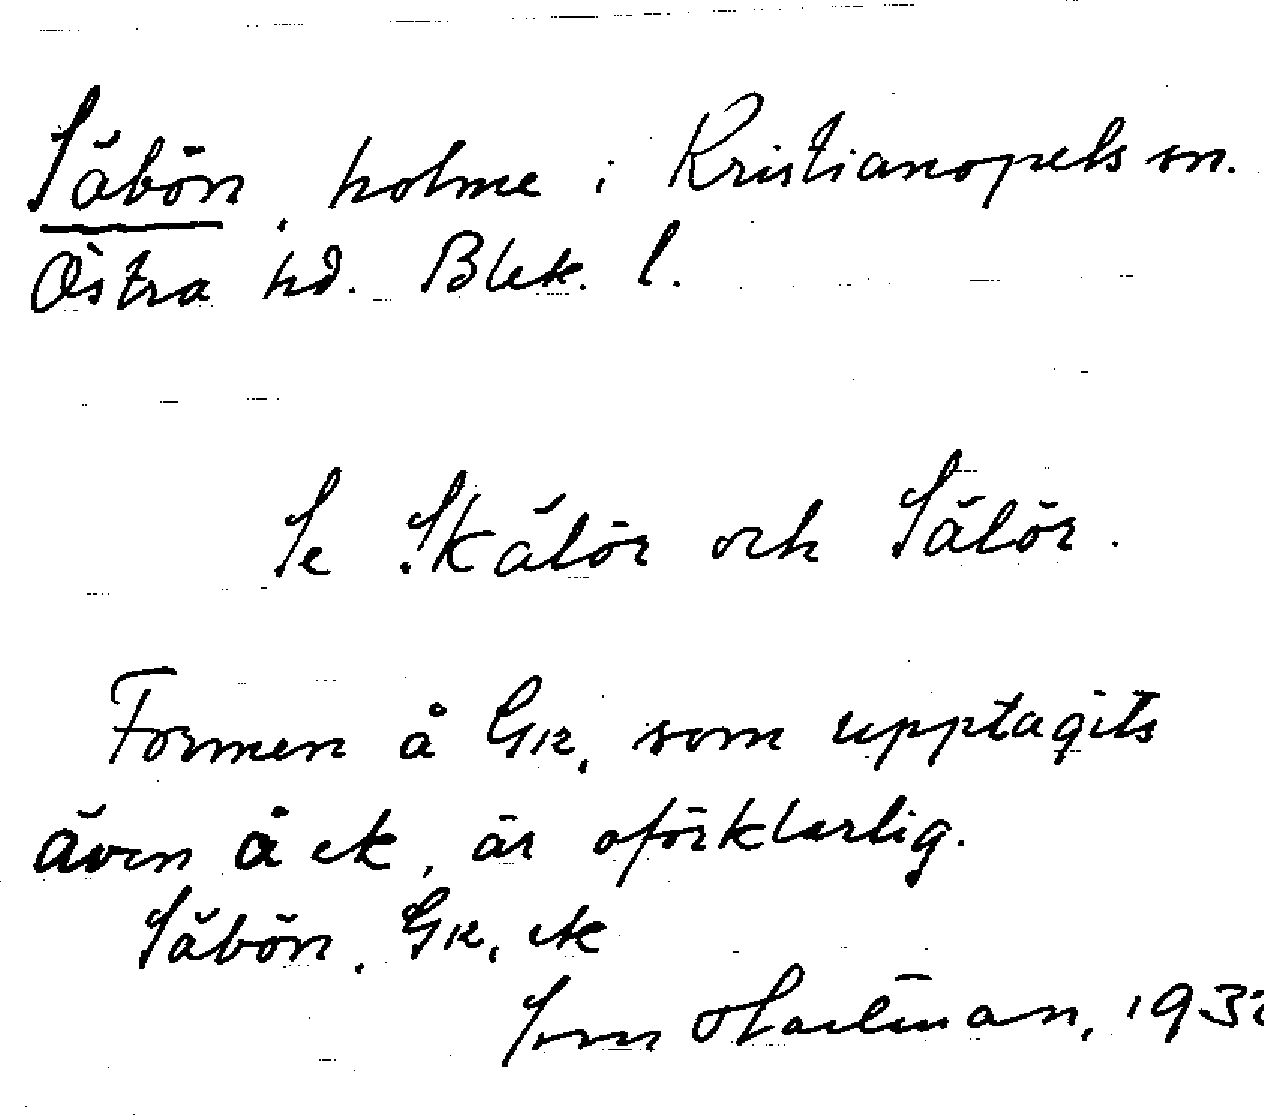 Säbön, holme i Kristianopels sn.
Östra hd. Blek. l.
Se Skälör och Sälör.
Formen å GK, som upptagits
även å ek, är oförklarlig.
Säbön, GK, ek
Hartman, 193